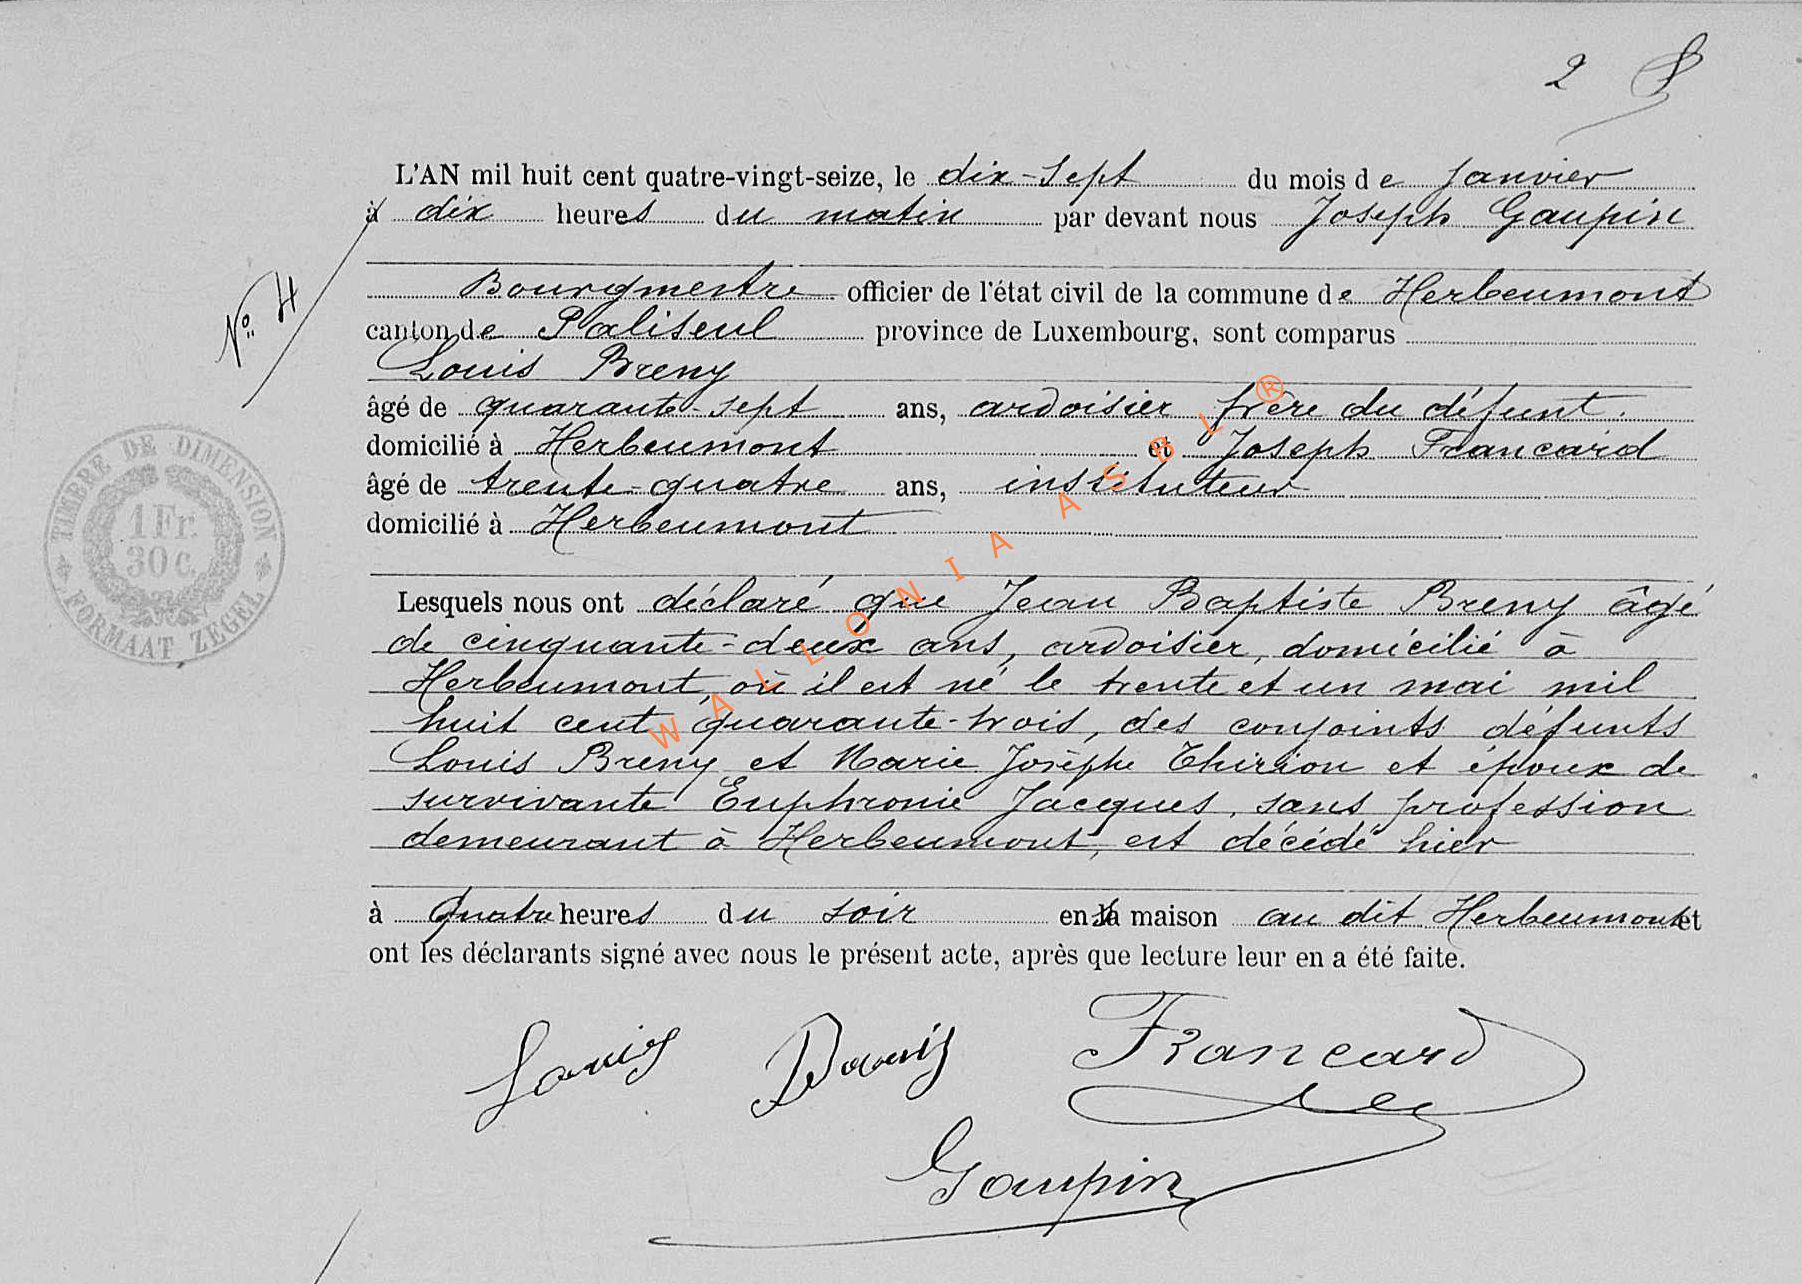 2
L'AN mil huit cent quatre-vingt-seize, le dix-sept du mois de Janvier
à dix heures du matin par devant nous Joseph Gaupin
Bourgmestre officier de l'état civil de la commune de Herbeumont
N° 4
canton de Paliseul province de Luxembourg, sont comparus
Louis Breny
âgé de quarante-sept ans, ardoisier frère du défunt.
domicilié à Herbeumont et Joseph Francard
âgé de trente-quatre ans, instituteur
domicilié à Herbeumont
TIMBRE DE DIMENSION
1 Fr.
30 c.
FORMAAT ZEGEL
Lesquels nous ont déclaré que Jean Baptiste Breny âgé
de cinquante-deux ans, ardoisier, domicilié à
Herbeumont, où il est né le trente et un mai mil
huit cent quarante-trois, des conjoints défunts
Louis Breny et Marie Josèphe Thirion et époux de
survivante Euphronie Jacques, sans profession
demeurant à Herbeumont, est décédé hier
à quatre heures du soir en sa maison au dit Herbeumont et
ont les déclarants signé avec nous le présent acte, après que lecture leur en a été faite.
Louis Francard
Gaupin
WALLONIA ASBL ®